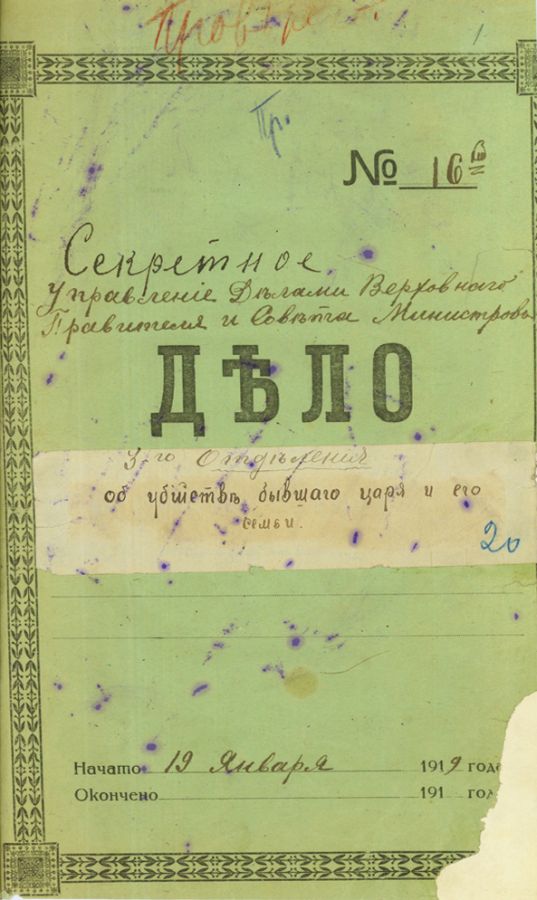 Проверено.
1
Пр.
№ 16 б
Секретное
Управленіе Дѣлами Верховнаго
Правителя и Совѣта Министровъ
ДѢЛО
3-го Отдѣленія
об убiйствѣ бывшаго царя и его
семьи.
20
Начато 19 Января 1919 года
Окончено 191 год